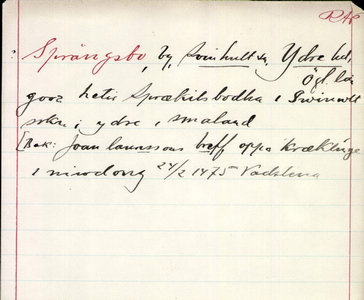 RAP
: Sprängsbo, by, Svinhult sn, Ydre hd,
Ögl län
gooz hetir Spræküsbodha i Swinwlt
sokn i ydre i smaland
[Bak: Joan laurissons breff oppa kræklinge
i niwdong 24/2 1475 Vadstena